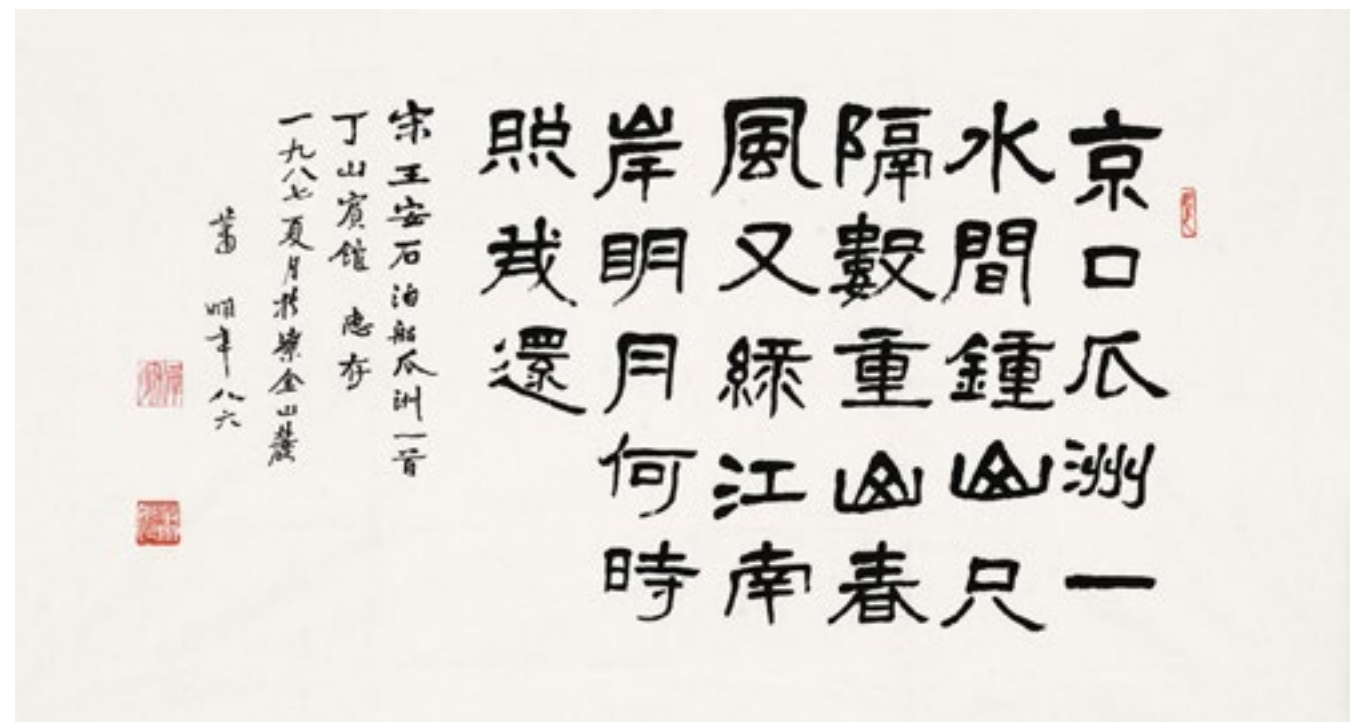 京口瓜洲一
水間鍾山只
隔數重山春
風又綠江南
岸明月何時
照我還
宋王安石泊船瓜洲一首
丁山賓館 惠存
一九八七夏月於紫金山麓
蕭 明年八六